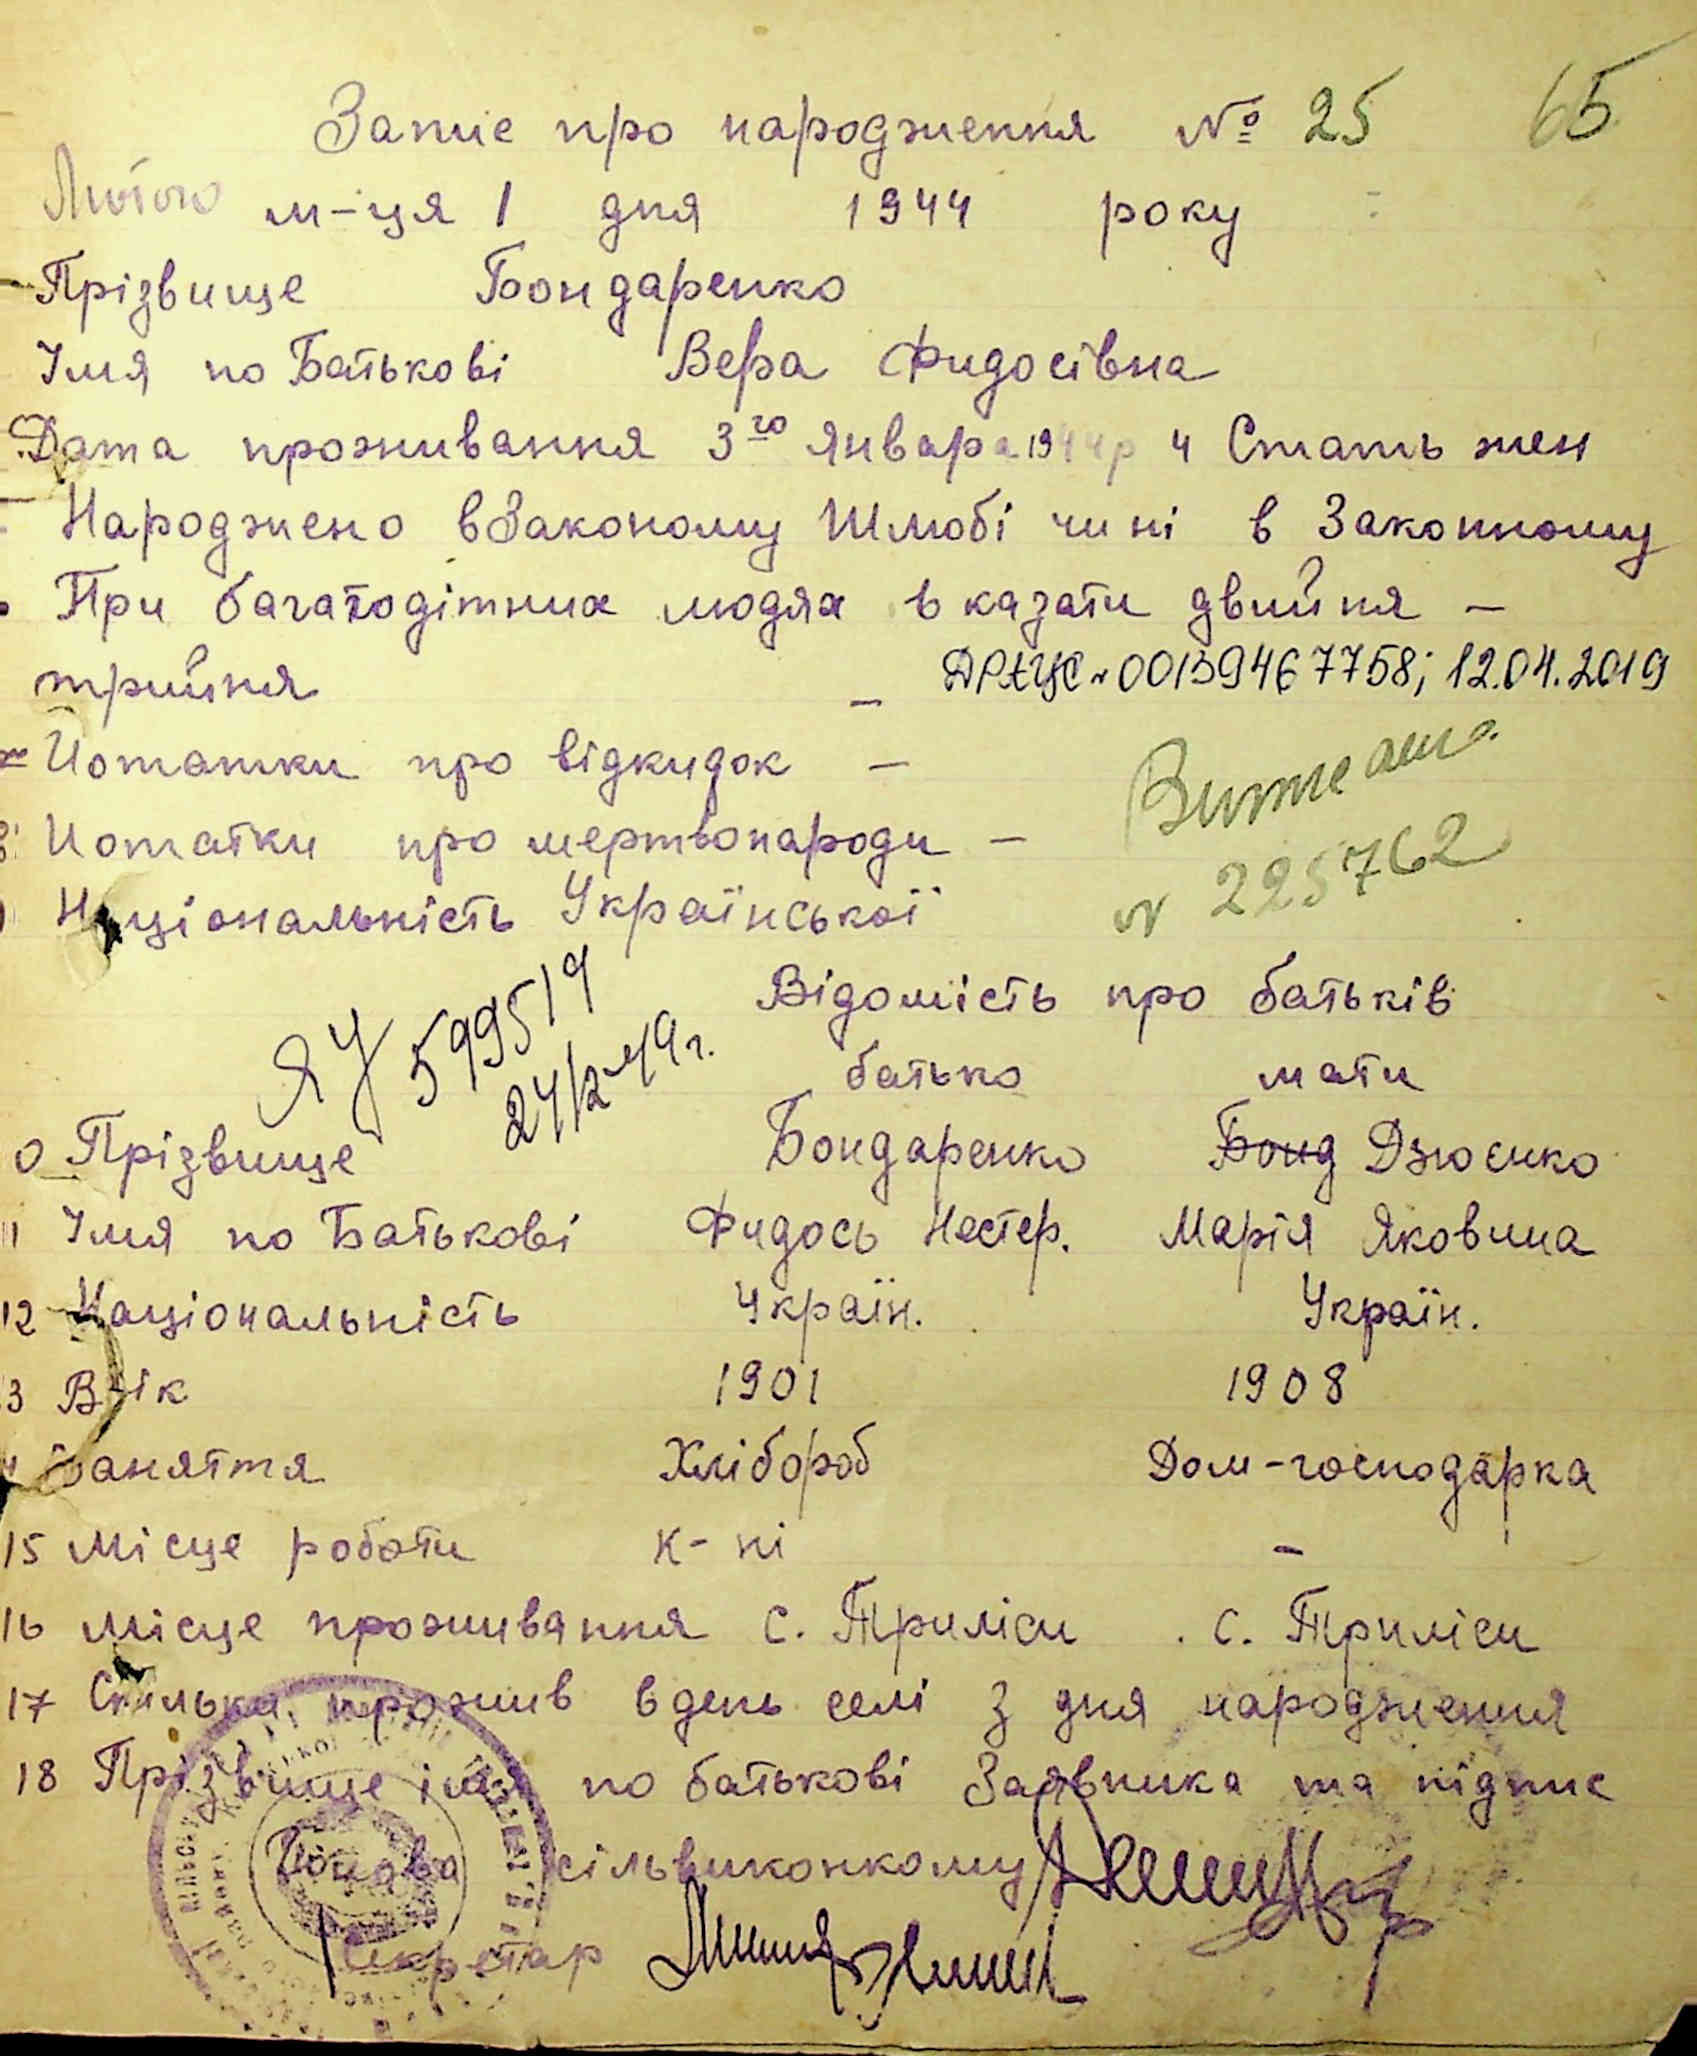 Запис про народження № 25 65
Лютого м-ця 1 дня 1944 року
Прізвище Бондаренко
Імя по Батькові Вера Фидосівна
Дата проживання 3го января 1944р 4 Стать жен
Народжено в Законому Шлюбі чи ні в Законному
При багатодітних людях вказати двийня –
трийня –
ДРАЦС № 00139467758; 12.04.2019
Нотатки про відкидок –
Нотатки про мертвонароди –
№ 225762
Національність Української
ЯУ 599519
Відомість про батьків
батько мати
0 Прізвище Бондаренко Бонд Дзюенко
11 Імя по Батькові Фидось Нестер. Марія Яковина
12 Національність Україн. Україн.
13 Вік 1901 1908
Заняття Хлібороб Дом-господарка
15 Місце роботи к-ні –
16 Місце проживання с. Триліси с. Триліси
17 Скільки прожив в день селі з дня народження
18 Прізвище імя по батькові Заявника та підпис
Голова сільвиконкому
Секретар